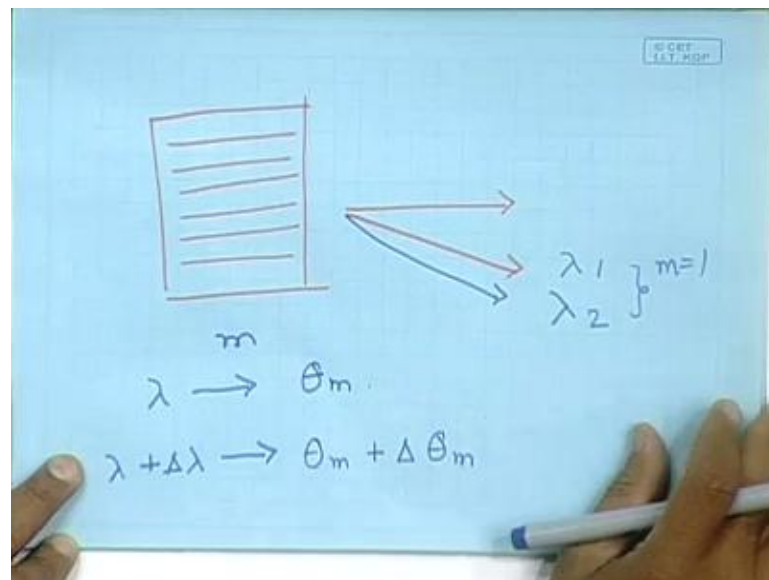 © CET
I.I.T. KGP
λ1
λ2 } m=1
m
λ → θm
λ + Δλ → θm + Δθm